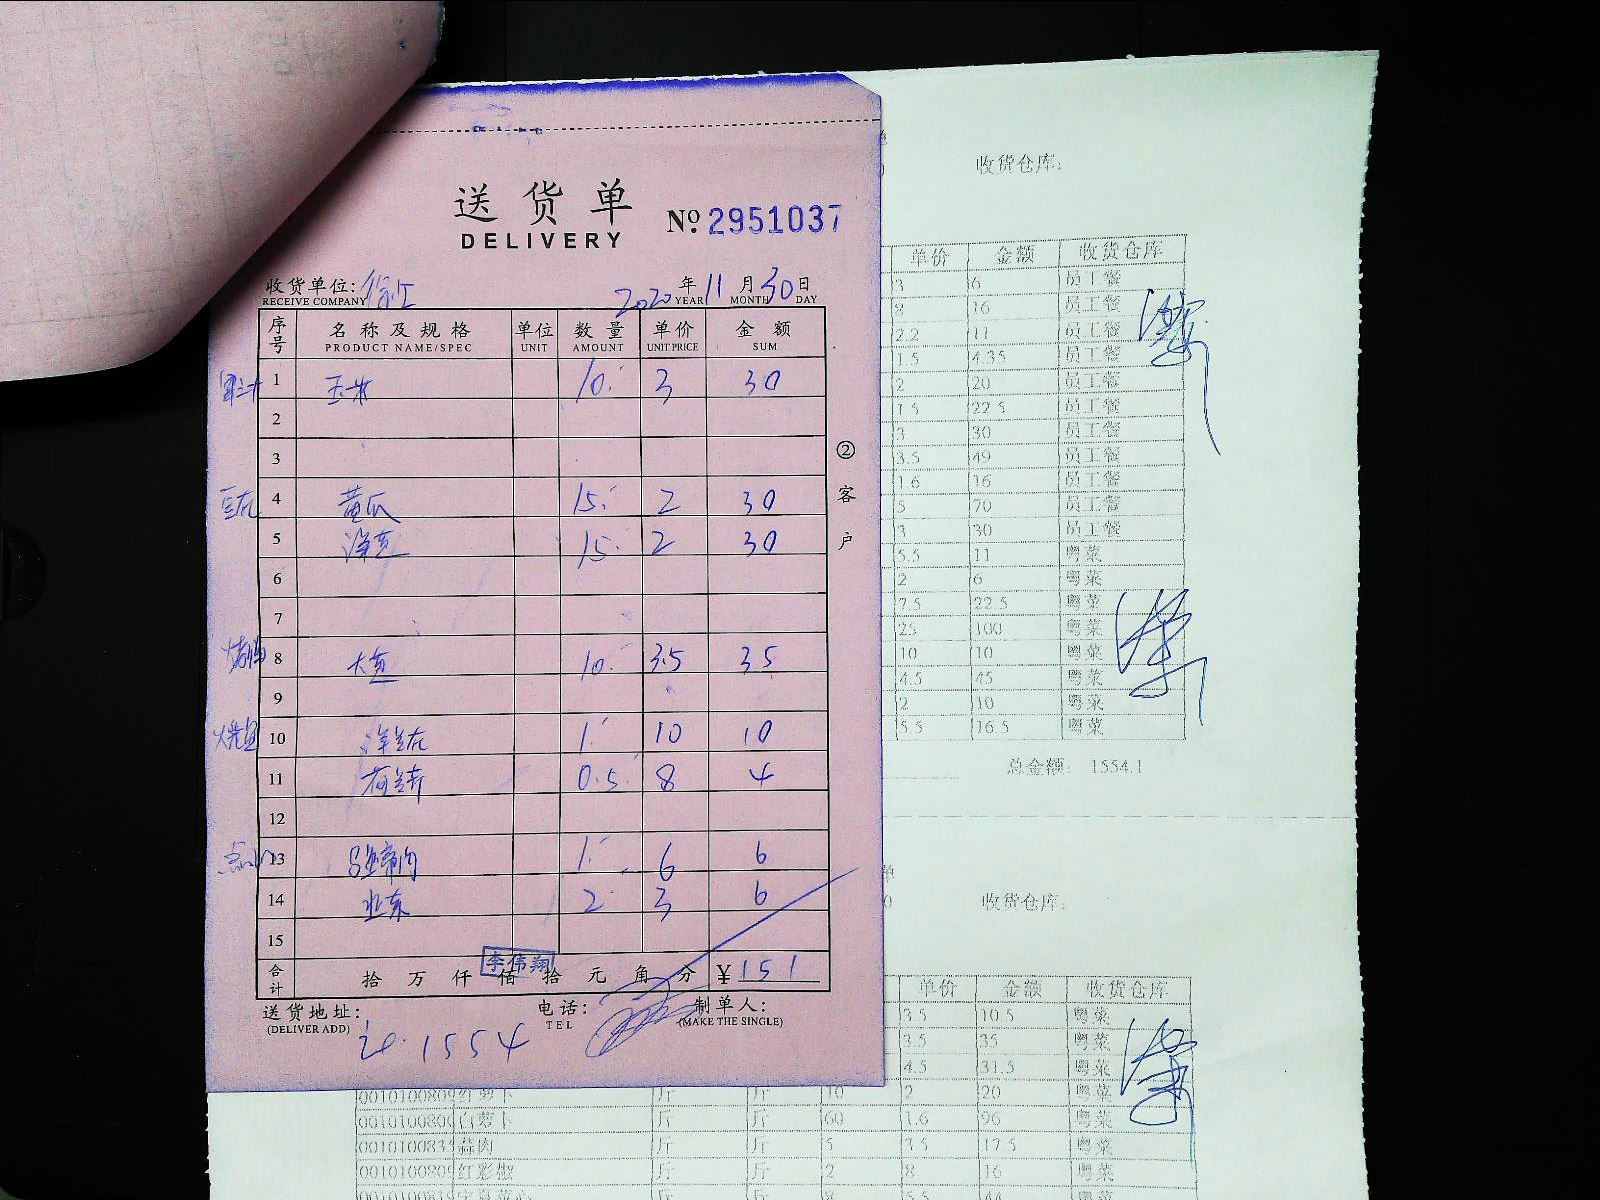 送货单
DELIVERY
Nº 2951037
收货单位:
RECEIVE COMPANY
2020 年 11 月 30 日
YEAR MONTH DAY
序号 名称及规格 单位 数量 单价 金额
PRODUCT NAME/SPEC UNIT AMOUNT UNIT PRICE SUM
1 玉米 10. 3 30
2
3
4 黄瓜 15. 2 30
5 洋葱 15. 2 30
6
7
8 大葱 10. 3.5 35
9
10 1. 10 10
11 0.5 8 4
12
13 1. 6 6
14 2 3 6
15
合计 拾 万 仟 佰 拾 元 角 分 ¥151
李伟翔
②客户
送货地址:
(DELIVER ADD)
电话:
TEL
制单人:
(MAKE THE SINGLE)
1554
收货仓库:
单价 金额 收货仓库
3 6 员工餐
8 16 员工餐
2.2 11 员工餐
1.5 4.35 员工餐
2 20 员工餐
1.5 22.5 员工餐
3 30 员工餐
3.5 49 员工餐
1.6 16 员工餐
5 70 员工餐
3 30 员工餐
5.5 11 粤菜
2 6 粤菜
7.5 22.5 粤菜
25 100 粤菜
10 10 粤菜
4.5 45 粤菜
2 10 粤菜
5.5 16.5 粤菜
总金额: 1554.1
收货仓库:
单价 金额 收货仓库
3.5 10.5 粤菜
3.5 35 粤菜
4.5 31.5 粤菜
红萝卜 斤 斤 10 2 20 粤菜
白萝卜 斤 斤 60 1.6 96 粤菜
蒜肉 斤 斤 5 3.5 17.5 粤菜
红彩椒 斤 斤 2 8 16 粤菜
斤 斤 8 5.5 44 粤菜